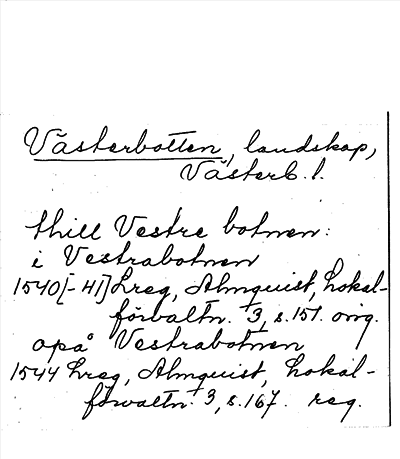 Västerbotten, landskap,
Västerb. l.
thill Vestre botnen:
i Vestrabotnen
1540[-41] Lreg, Almquist, Lokal-
förvaltn. 3, s. 151. orig.
opå Vestrabotnen
1544 Lreg, Almquist, Lokal-
förvaltn. 3, s. 167. reg.